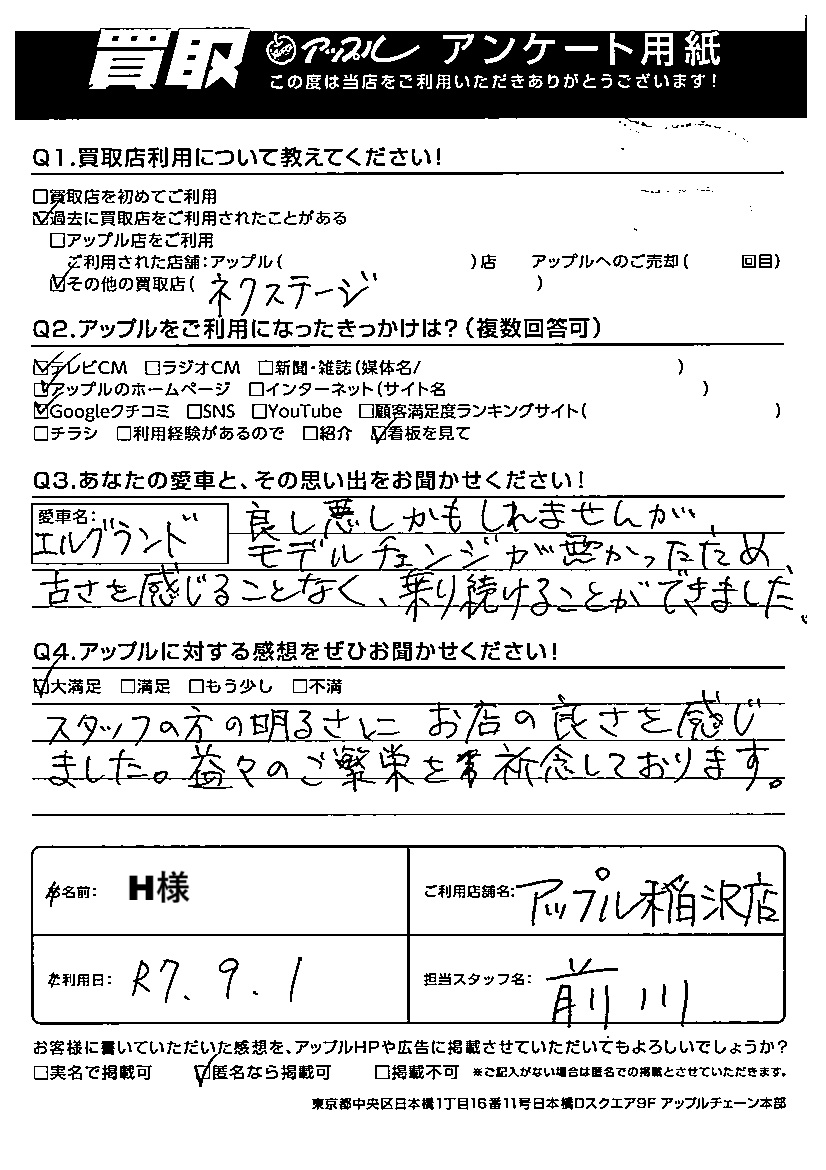 買取 アップル アンケート用紙
この度は当店をご利用いただきありがとうございます!
Q1.買取店利用について教えてください!
□買取店を初めてご利用
☑過去に買取店をご利用されたことがある
□アップル店をご利用
ご利用された店舗:アップル( )店 アップルへのご売却( 回目)
☑その他の買取店( ネクステージ )
Q2.アップルをご利用になったきっかけは?(複数回答可)
☑テレビCM □ラジオCM □新聞・雑誌(媒体名/ )
☑アップルのホームページ □インターネット(サイト名 )
☑Googleクチコミ □SNS □YouTube □顧客満足度ランキングサイト( )
□チラシ □利用経験があるので □紹介 ☑看板を見て
Q3.あなたの愛車と、その思い出をお聞かせください!
愛車名: エルグランド
良し悪しかもしれませんが、
モデルチェンジが悪かったため、
古さを感じることなく、乗り続けることができました。
Q4.アップルに対する感想をぜひお聞かせください!
☑大満足 □満足 □もう少し □不満
スタッフの方の明るさに お店の良さを感じ
ました。益々のご繁栄を祈念しております。
お名前: H様
ご利用店舗名: アップル稲沢店
ご利用日: R7.9.1
担当スタッフ名: 前川
お客様に書いていただいた感想を、アップルHPや広告に掲載させていただいてもよろしいでしょうか?
□実名で掲載可 ☑匿名なら掲載可 □掲載不可 ※ご記入がない場合は匿名での掲載とさせていただきます。
東京都中央区日本橋1丁目16番11号日本橋Dスクエア9F アップルチェーン本部